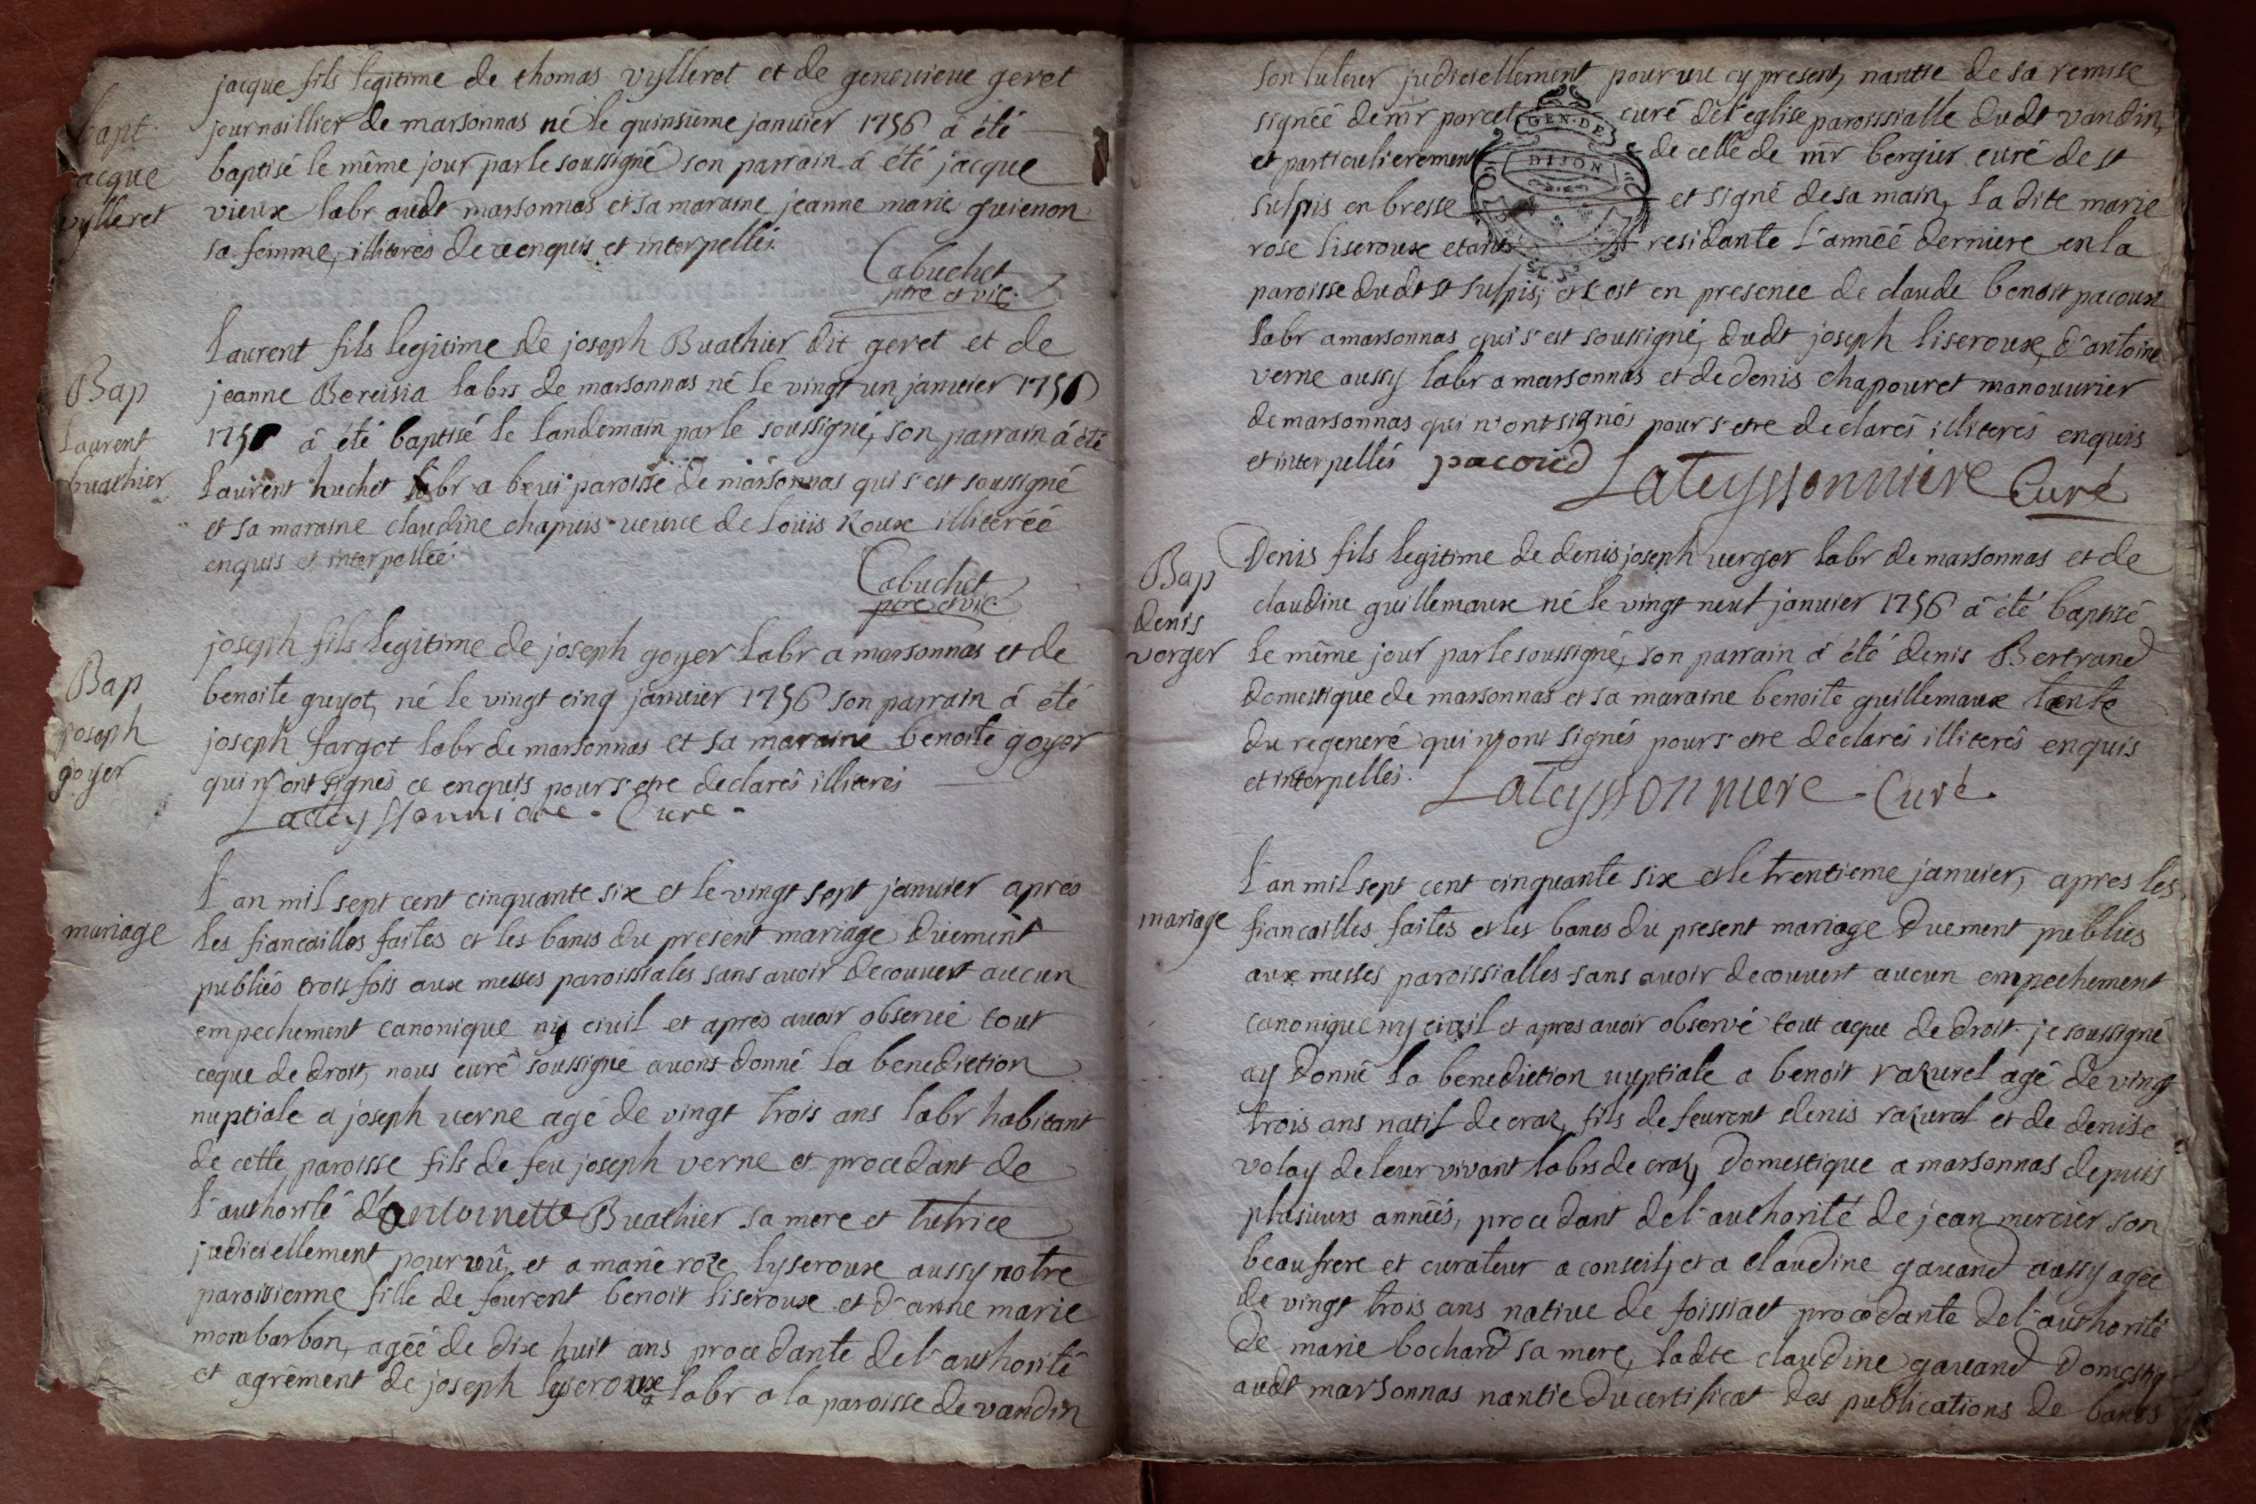 bapt
jacque
vylleret
jacque fils legitime de thomas vylleret et de genevieve geret
journaillier de marsonnas né le quinsieme janvier 1756 a été
baptisé le même jour par le soussigné son parrain a été jacque
vieux labr audt marsonnas et sa maraine jeanne marie guienon
sa femme, illiteres de ce enquis et interpellés.
Cabuchet
ptre et vic.
Bap
laurent
buathier
Laurent fils legitime de joseph Buathier dit geret et de
jeanne Boreisia labrs de marsonnas né le vingt un janvier 1756
1756 a été baptisé le landemain par le soussigné, son parrain a été
Laurent huchet labr a beui paroisse de marsonnas qui s'est soussigné
et sa maraine claudine chapuis veuve de loüis Roux illiterée
enquis et interpellée.
Cabuchet
ptre et vic
Bap
joseph
goyer
joseph fils legitime de joseph goyer labr a marsonnas et de
benoite guyot, né le vingt cinq janvier 1756 son parrain a été
joseph fargot labr de marsonnas et sa maraine benoite goyer
qui n'ont signés ce enquis pour s'etre declarés illiterés
Lateyssonniere - Curé -
mariage
L'an mil sept cent cinquante six et le vingt sept janvier apres
les fiancailles faites et les bancs du present mariage düement
publiés trois fois aux messes paroissiales sans avoir decouvert aucun
empechement canonique ny civil et apres avoir observé tout
ceque de droit, nous curé soussigné avons donné la benediction
nuptiale a joseph verne agé de vingt trois ans labr habitant
de cette paroisse fils de feu joseph verne et procedant de
l'authorité d'antoinette Buathier sa mere et tutrice
judiciellement pourvüe, et a marie roze lyseroux aussy notre
paroissienne fille de feurent benoit liseroux et d'anne marie
monbarbon, agéé de dix huit ans procedante de l'authorité
et agrêment de joseph lyseroux labr a la paroisse de vandin
son tuteur judiciellement pourvu cy present, nantie de sa remise
signéé de mr porcet curé de l'eglise paroissialle dudt vandin,
GEN. DE
DIJON
et particulierement de celle de mr bergier curé de st
sulpis en bresse et signé de sa main, la dite marie
rose liseroux etant residante l'annéé derniere en la
paroisse dudt st sulpis, et c'est en presence de claude benoit pacoux
labr a marsonnas qui s'est soussigné, dudt joseph liseroux, d'antoine
verne aussy labr a marsonnas et de denis chapouret manouvrier
de marsonnas qui n'ont signés pour s'etre declarés illiterés enquis
et interpellés pacoud
Lateyssonniere Curé
Bap
denis
verger
Denis fils legitime de denis joseph verger labr de marsonnas et de
claudine guillemaux né le vingt neuf janvier 1756 a été baptisé
le même jour par le soussigné, son parrain a été denis Bertrand
domestique de marsonnas et sa maraine benoite guillemaux tante
du regeneré qui n'ont signés pour s'etre declarés illiterés enquis
et interpellés.
Lateyssonniere - Curé.
mariage
L'an mil sept cent cinquante six et le trentieme janvier, apres les
fiancailles faites et les bancs du present mariage duement publiés
aux messes paroissialles sans avoir decouvert aucun empechement
canonique ny civil et apres avoir observé tout ceque de droit je soussigné
ay donné la benediction nuptiale a benoit razurel agé de vingt
trois ans natif de craz, fils de feurent denis razurel et de denise
volay de leur vivant labrs de craz, domestique a marsonnas depuis
plusieurs annéés, procedant de l'authorité de jean mercier son
beaufrere et curateur a conseil, et a claudine gavand aussy agée
de vingt trois ans native de foissiat procedante de l'authorité
de marie bochard sa mere, ladte claudine gavand domestiq
audt marsonnas nantie du certificat des publications de bancs